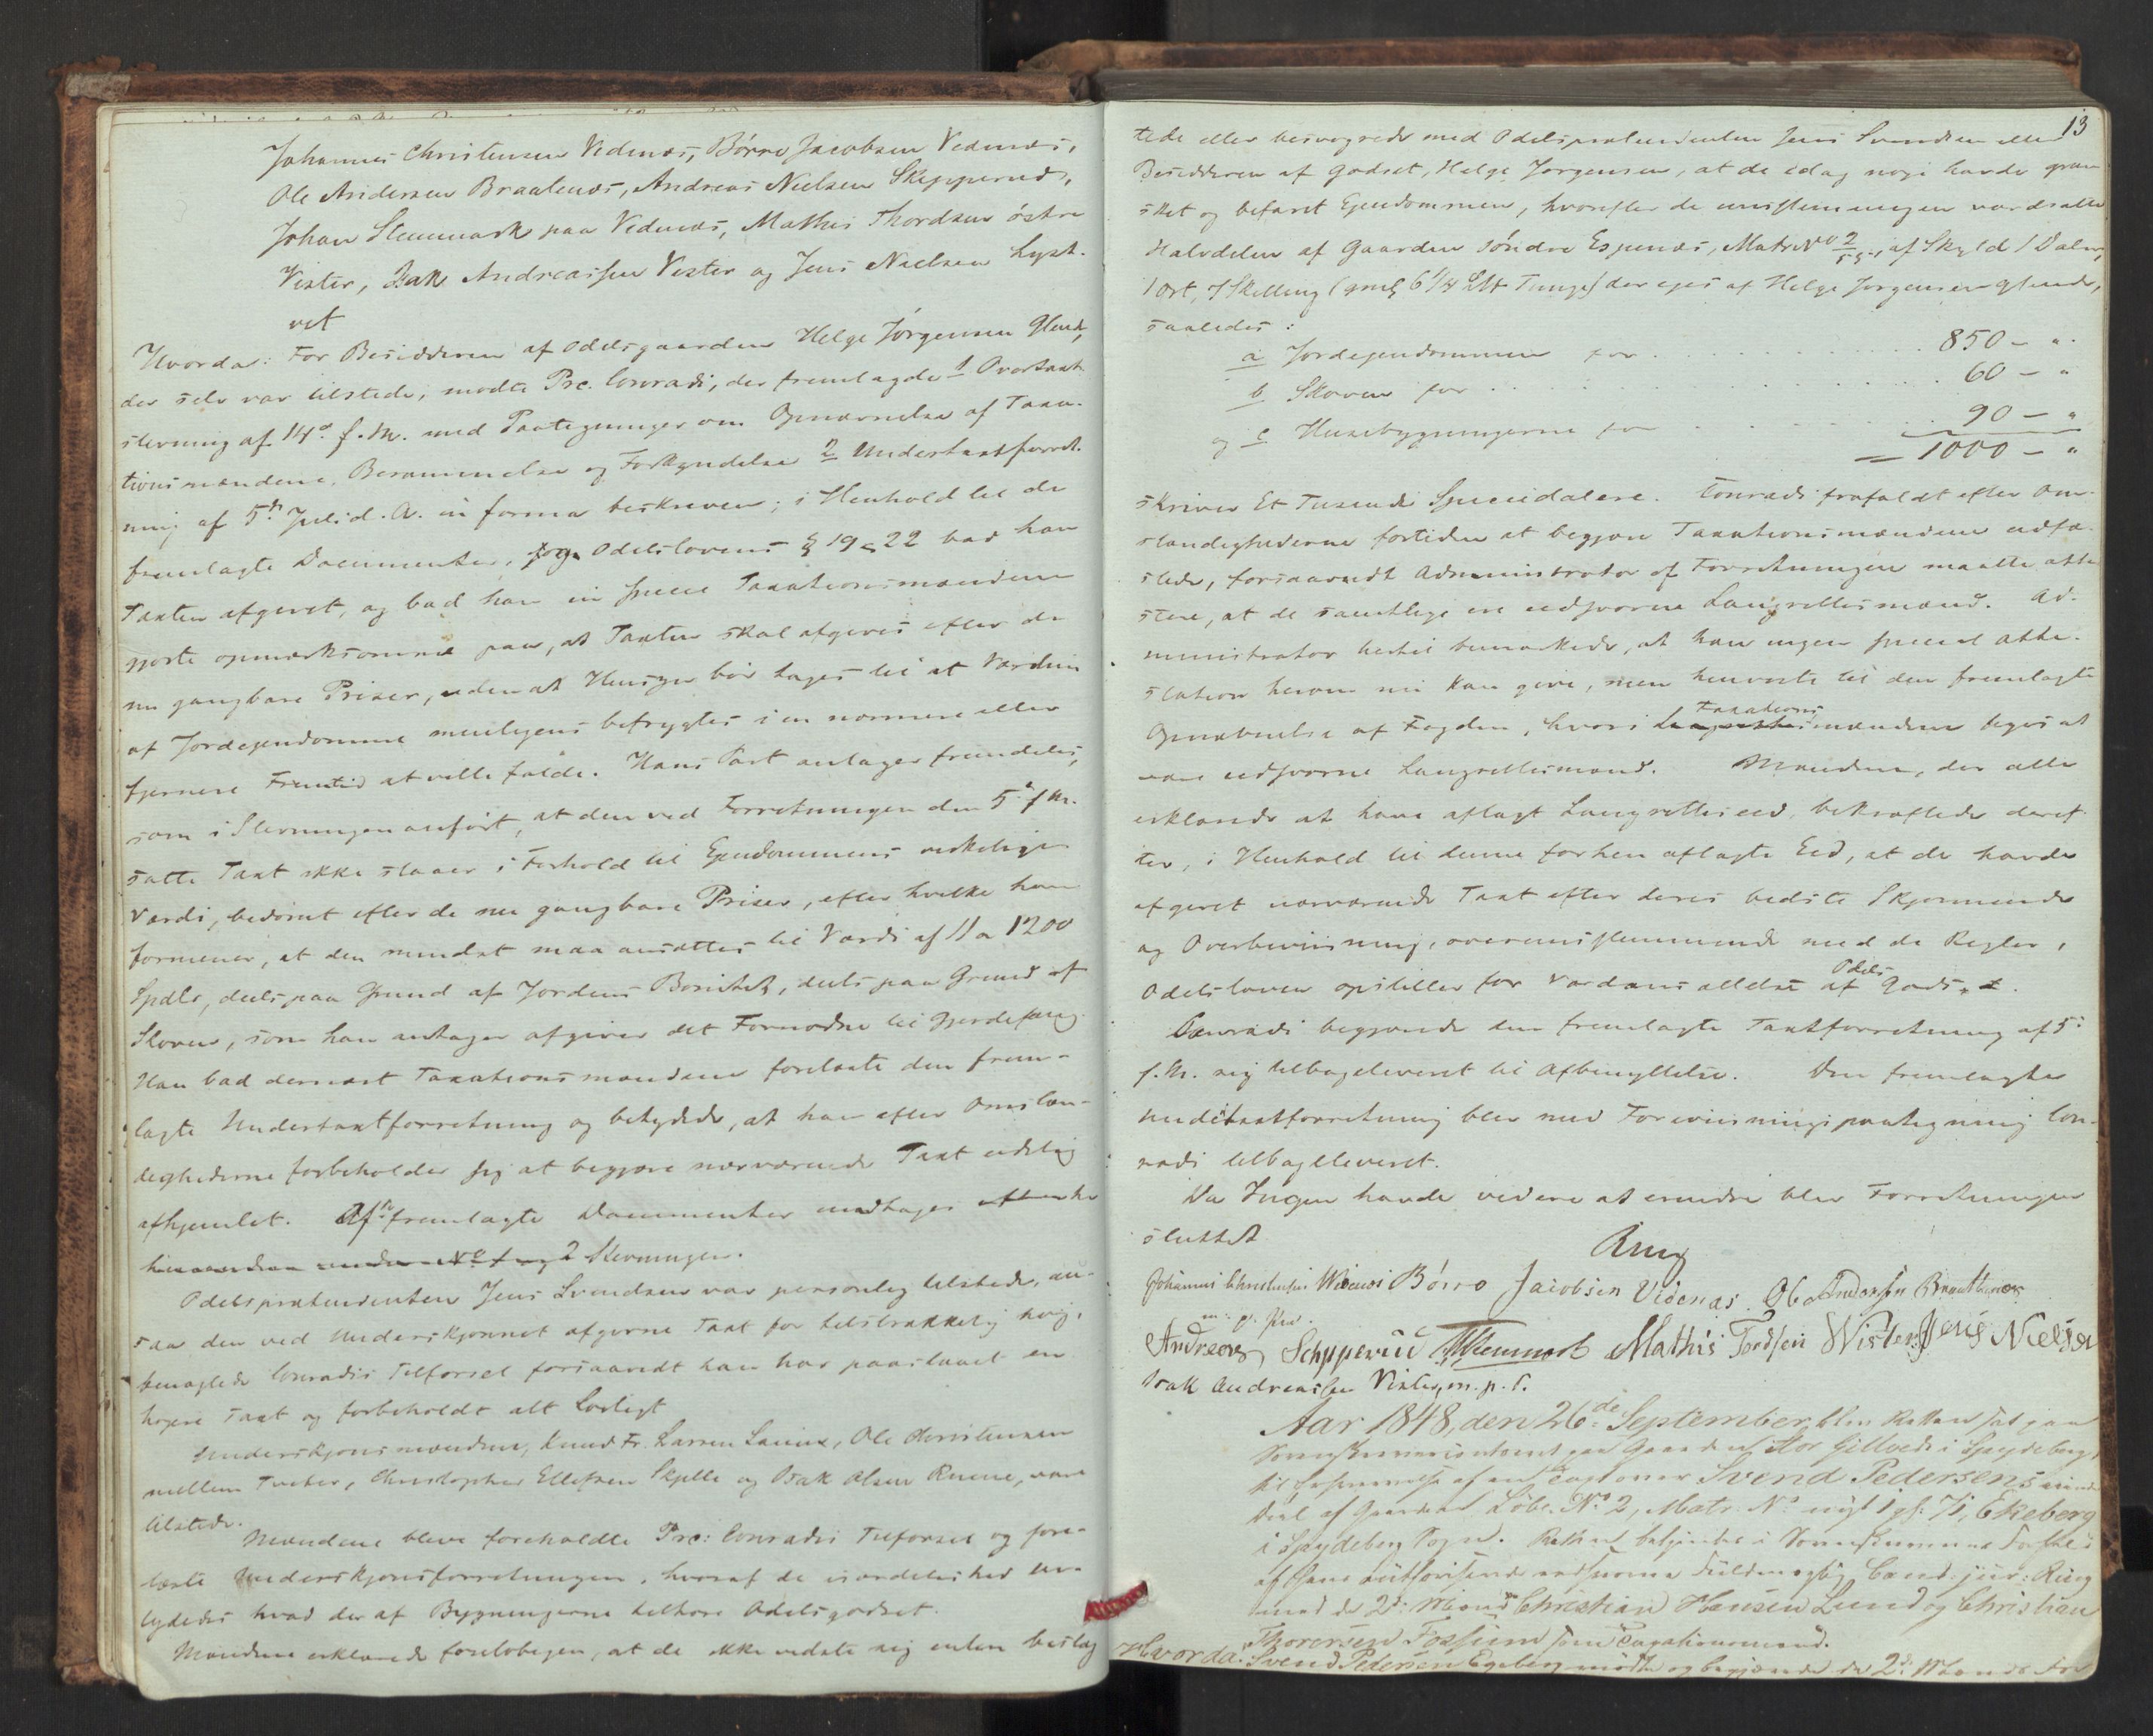 Johannes Christensen Vidnæs, Börre Jacobsen Vidnæs,
Ole Andersen Braatenæs, Andreas Nielsen Skipperud,
Johan Stenmark paa Vidnæs, Mathis Thordsen östre
Vister, Isak Andreassen Vister og Jens Nielsen Lyst-
vet
Hvorda: For Besidderen af Odelsgaarden Helge Jörgensen
der selv var tilstede, mødte Prc. Conradi, der fremlagde 1 Overtaxt
stevning af 14de f. M. med Paategninger om Opnævnelse af Taxa-
tionsmændene, Berammelse og Forkyndelse 2 Undertaxtforret-
ning af 5te Juli d. A. in forma beskreven; i Henhold til de
fremlagte Documenter, og Odelslovens § 19 - 22 bad han
Taxten afgivet, og bad han in specie Taxationsmændene
gjorte opmærksomme paa, at Taxten skal afgives efter de
nu gangbare Priser, uden at Hensyn bör tages til at Værdien
af Jordejendomme muligens befrygtes i en nærmere eller
fjernere Fremtid at ville falde. Hans Part antager fremdeles,
som i Stevningen anfört, at den ved Forretningen den 5te f. M.
satte Taxt ikke staaer i Forhold til Ejendommens virkelige
Værdi, bedömt efter de nu gangbare Priser, efter hvilke han
formener, at den mindst maa ansættes til Værdi af 11 a 1200
Spdlr, deels paa Grund af Jordens Bonitet, deels paa Grund af
Skoven, som han antager afgiver det Fornødne til Gjerdefang.
Han bad dernæst Taxationsmændene forelæste den frem-
lagte Undertaxtforretning og betydede, at han efter Omstæn-
dighederne forbeholder sig at begjære nærværende Taxt edelig
afhjemlet. Af de fremlagte Documenter indtages
2 Stevningen.
Odelsprætendenten Jens Svendsen var personlig tilstede, an-
saa den ved Underskjønnet afgivne Taxt for tilstrækkelig höig,
benægtede Conradis Tilförsel forsaavidt han har paastaaet en
höiere Taxt og forbeholdt alt Lovligt
Underskjönsmændene, Knud Fr. Larsen Lanix, Ole Christensen
mellem Tveter, Christopher Ellefsen Skjelle og Isak Olsen Rene, vare
tilstede.
Mændene bleve foreholdte Prc: Conradis Tilförsel og fore-
læste Underskjönsforretningen, hvoraf de isærdeleshed un-
dgik hvad der af Bygningerne tilhöre Odelsgodset.
Mændene erklærede foreløbigen, at de ikke vidste sig enten beslæg
13
tede eller besvogrede med Odelsprætendenten Jens Svendsen eller
Besidderen af Godset, Helge Jörgensen, at de idag nøje havde gran-
sket og befaret Ejendommen, hvorefter de eenstemmigen værdsatte
Halvdelen af Gaarden söndre Espenæs, Matr No 2/55, af Skyld 1 Daler,
1 Ort, 7 Skilling (gml. 6 1/4 Tunge) der ejes af Helge Jörgensen
saaledes:
a Jordejendommen for . . . . 850 - "
b Skoven for . . . . 60 - "
og c Husebygningerne for . . . . 90 - "
= 1000 - "
skriver Et Tusende Speciedalere. Conradi frafaldt efter Om-
stændighederne fortiden at begjære Taxationsmændene edfæ-
stede, forsaavidt Administrator af Forretningen maatte atte-
stere, at de samtlige ere edsvorne Laugrettesmænd. Ad-
ministrator hertil bemærkede, at han ingen speciel Atte-
station herom nu kan give, men henviste til den fremlagte
Opnævnelse af Fogden, hvori Taxationsmændene siges at
være edsvorne Laugrettesmænd. Mændene, der alle
erklærede at have aflagt Laugretteseed, bekræftede deref-
ter, i Henhold til denne forhen aflagte Eed, at de havde
afgivet nærværende Taxt efter deres bedste Skjønnende
og Overbeviisning, overeensstemmende med de Regler,
Odelsloven opstiller for Værdiansættelse af Odels Gods.
Conradi begjærede den fremlagte Taxtforretning af 5te
f. M. sig tilbageleveret til Afbenyttelse. Den fremlagte
Undertaxtforretning blev med Foreviisningspaategning Con-
radi tilbageleveret.
Da Ingen havde videre at erindre blev Forretningen
sluttet
Ring
Johannes Christensen Widnæs Börre Jacobsen Videnas. Ole Andersen Braattenæs
m. p. Pen.
Andreas Schpperud JStenmark Mathis Tordsen Wister Jens Nielsen
Isak Andreassen Vister, m. p. P.
Aar 1848, den 26de September, blev Retten sat paa
Sorenskrivercontoiret paa Gaarden Stor Gillvedt i Spydeberg,
til Fremmelse af en Taxt over Svend Pedersens
Deel af Gaarden Löbe No 2, Matr. No nyt 7, Ekeberg
i Spydeberg Sogn. Retten betjentes i Sorenskriverens Forfald
af Hans authoriserede edsvorne Fuldmægtig Cand. jur: Ring
med de 2de Mænd Christian Hansen Lund og Christian
Thorersen Fossum som Taxationsmænd.
Hvorda: Svend Pedersen Egeberg mødte og begjærede de 2de Mænds For